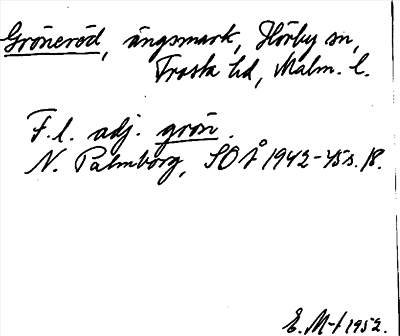 Gröneröd, ängsmark, Hörby sn,
Frosta hd, Malm. l.
F.l. adj. grön.
N. Palmborg, SOÅ 1942-45 s. 18.
E. M-t 1952.